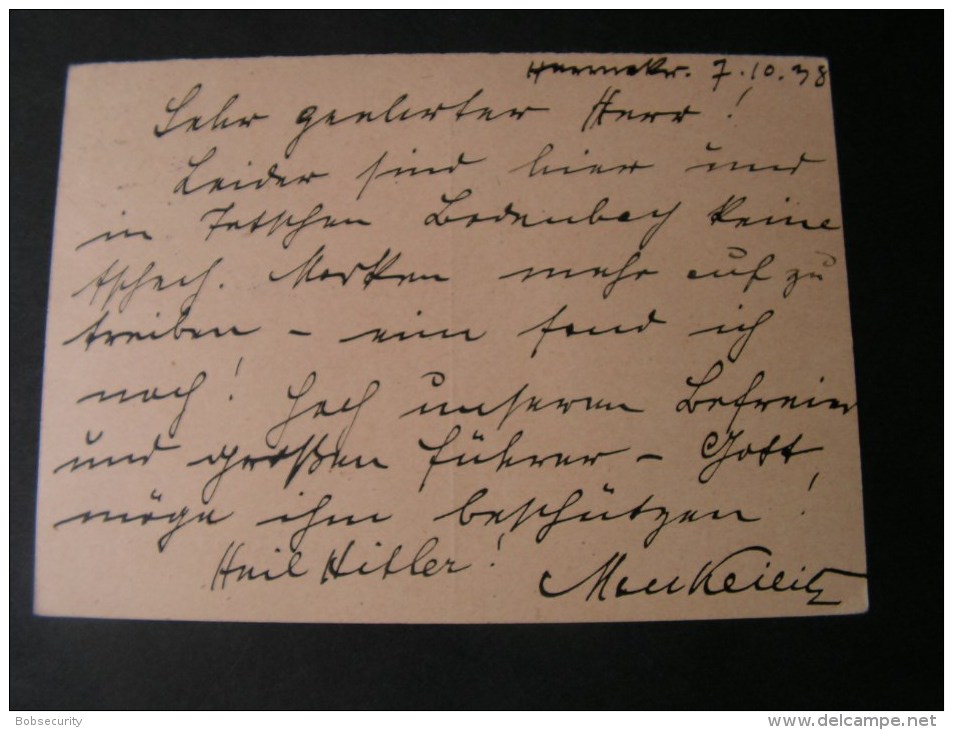 7.10.38
Sehr geehrter Herr!
Leider sind hier und
in Tetschen Bodenbach keine
tschech. Marken mehr auf zu
treiben – ein fand ich
noch! Hoch unseren Befreier
und großen Führer – Gott
möge ihm beschützen!
Heil Hitler!
Bobsecurity
www.delcampe.net